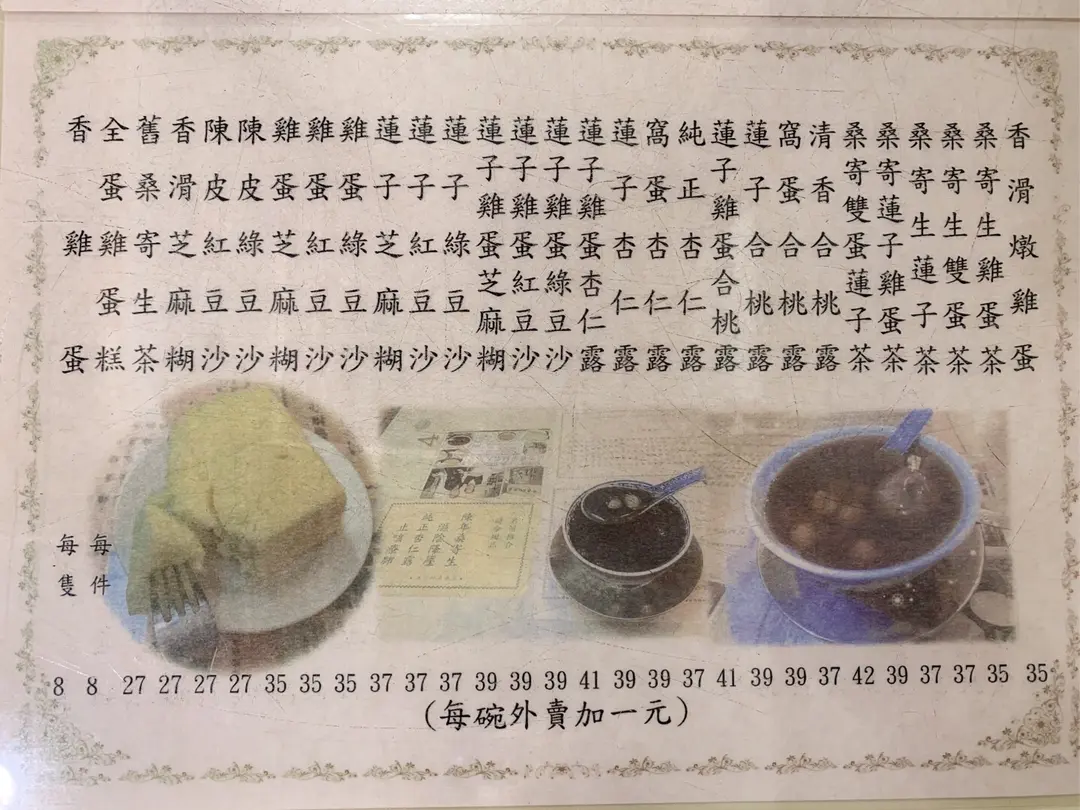 香滑燉雞蛋 35
桑寄生雞蛋茶 35
桑寄生雙蛋茶 37
桑寄生蓮子茶 37
桑寄蓮子雞蛋茶 39
桑寄雙蛋蓮子茶 42
清香合桃露 37
窩蛋合桃露 39
蓮子合桃露 39
蓮子雞蛋合桃露 41
純正杏仁露 37
窩蛋杏仁露 39
蓮子杏仁露 39
蓮子雞蛋杏仁露 41
蓮子雞蛋綠豆沙 39
蓮子雞蛋紅豆沙 39
蓮子雞蛋芝麻糊 39
蓮子綠豆沙 37
蓮子紅豆沙 37
蓮子芝麻糊 37
雞蛋綠豆沙 35
雞蛋紅豆沙 35
雞蛋芝麻糊 35
陳皮綠豆沙 27
陳皮紅豆沙 27
香滑芝麻糊 27
舊桑寄生茶 27
全蛋雞蛋糕 每件 8
香雞蛋 每隻 8
(每碗外賣加一元)